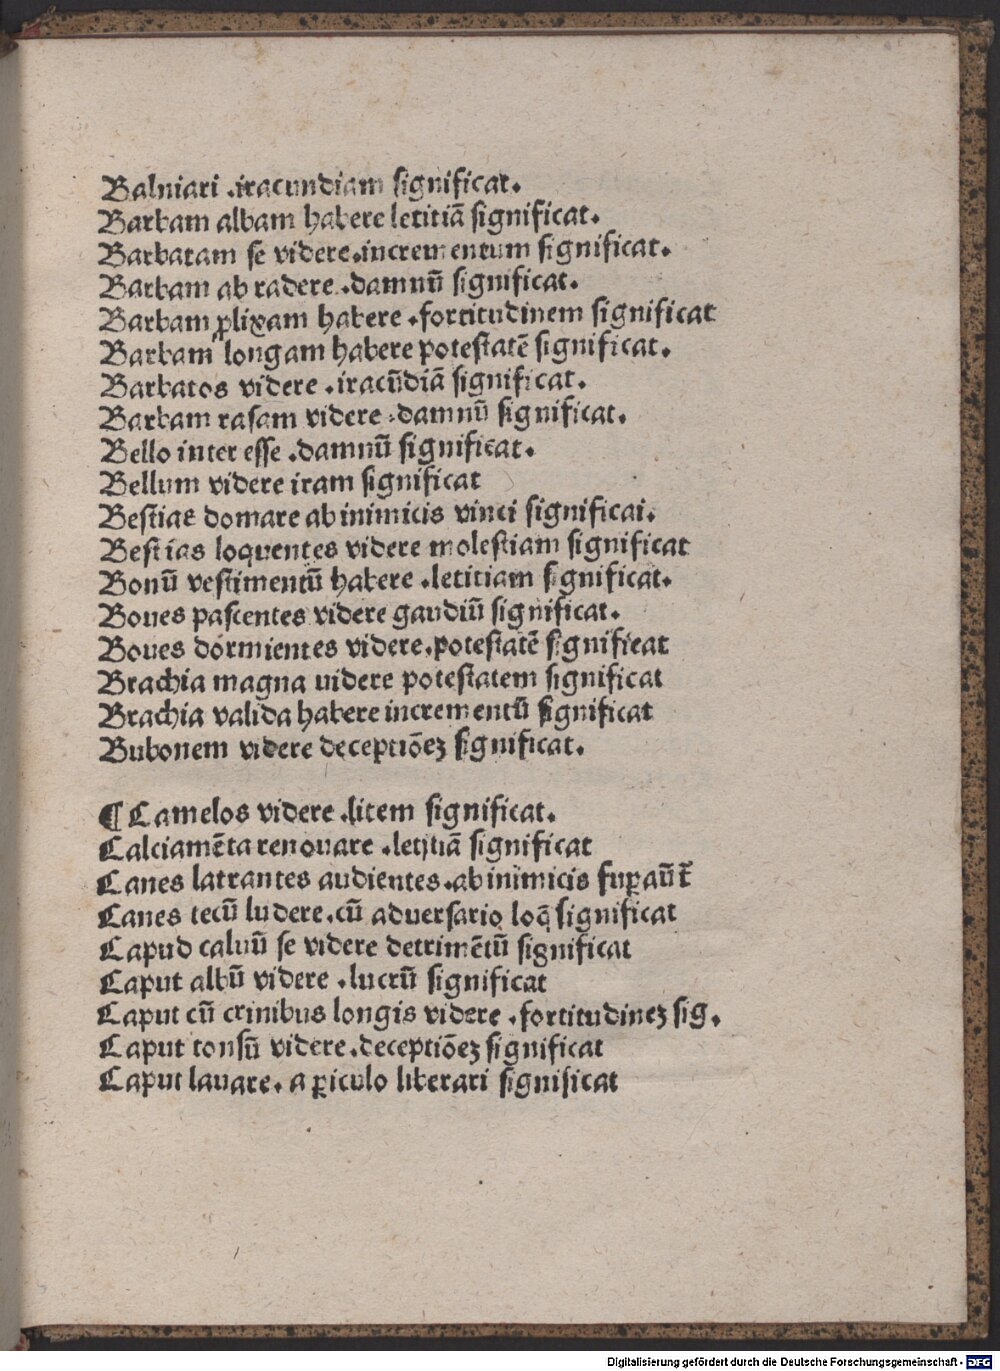 Balniari .iracundiam significat.
Barbam albam habere letitiā significat.
Barbatam se videre.incrementum significat.
Barbam ab radere .damnū significat.
Barbam ꝓlixam habere .fortitudinem significat
Barbam longam habere potestatē significat.
Barbatos videre .iracūdiā significat.
Barbam rasam videre .damnū significat.
Bello inter esse .damnū significat.
Bellum videre iram significat
Bestias domare ab inimicis vinci significai.
Bestias loquentes videre molestiam significat
Bonū vestimentū habere .letitiam significat.
Boues pascentes videre gaudiū significat.
Boues dormientes videre.potestatē significat
Brachia magna uidere potestatem significat
Brachia valida habere incrementū significat
Bubonem videre deceptiōez significat.
¶ Camelos videre .litem significat.
Calciamēta renouare .letitiā significat
Canes latrantes audientes.ab inimicis suꝑaūt̄
Canes tecū ludere.cū aduersario loq̄ significat
Capud caluū se videre detrimētū significat
Caput albū videre .lucrū significat
Caput cū crinibus longis videre .fortitudinez sig.
Caput tonsū videre.deceptiōez significat
Caput lauare. a ꝑiculo liberari significat
Digitalisierung gefördert durch die Deutsche Forschungsgemeinschaft - DFG